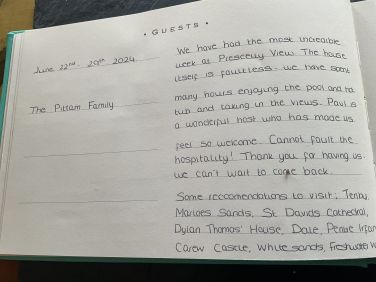 • GUESTS •
June 22nd - 29th 2024
The Pittam Family
We have had the most incredible
week at Prescelly View. The house
itself is faultless - we have spent
many hours enjoying the pool and hot
tub and taking in the views. Paul is
a wonderful host who has made us
feel so welcome. Cannot fault the
hospitality! Thank you for having us.
we can't wait to come back.
Some reccomendations to visit: Tenby,
Marloes Sands, St Davids Cathedral,
Dylan Thomas' House, Dale,
Carew Castle, White sands, Freshwater W